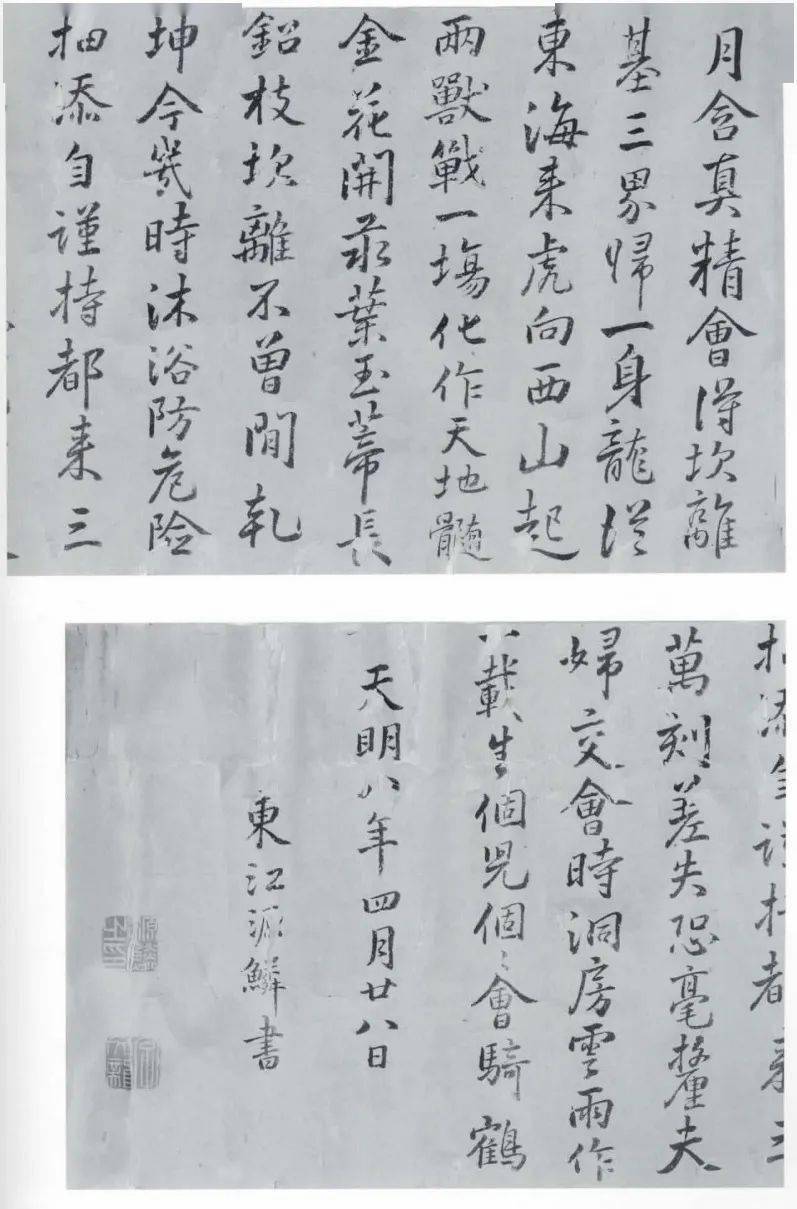 月含真精會得坎離
基三界帰一身龍從
東海来虎向西山起
兩獸戰一塲化作天地髓
金花開汞葉玉蒂長
鉛枝坎離不曾閒乾
坤今幾時沐浴防危險
抽添自謹持都来三
抽添自謹持都来三
萬刻差失恐毫釐夫
婦交會時洞房雲雨作
一載生個児個々會騎鶴
天明八年四月廿八日
東江源鱗書
源鱗之印